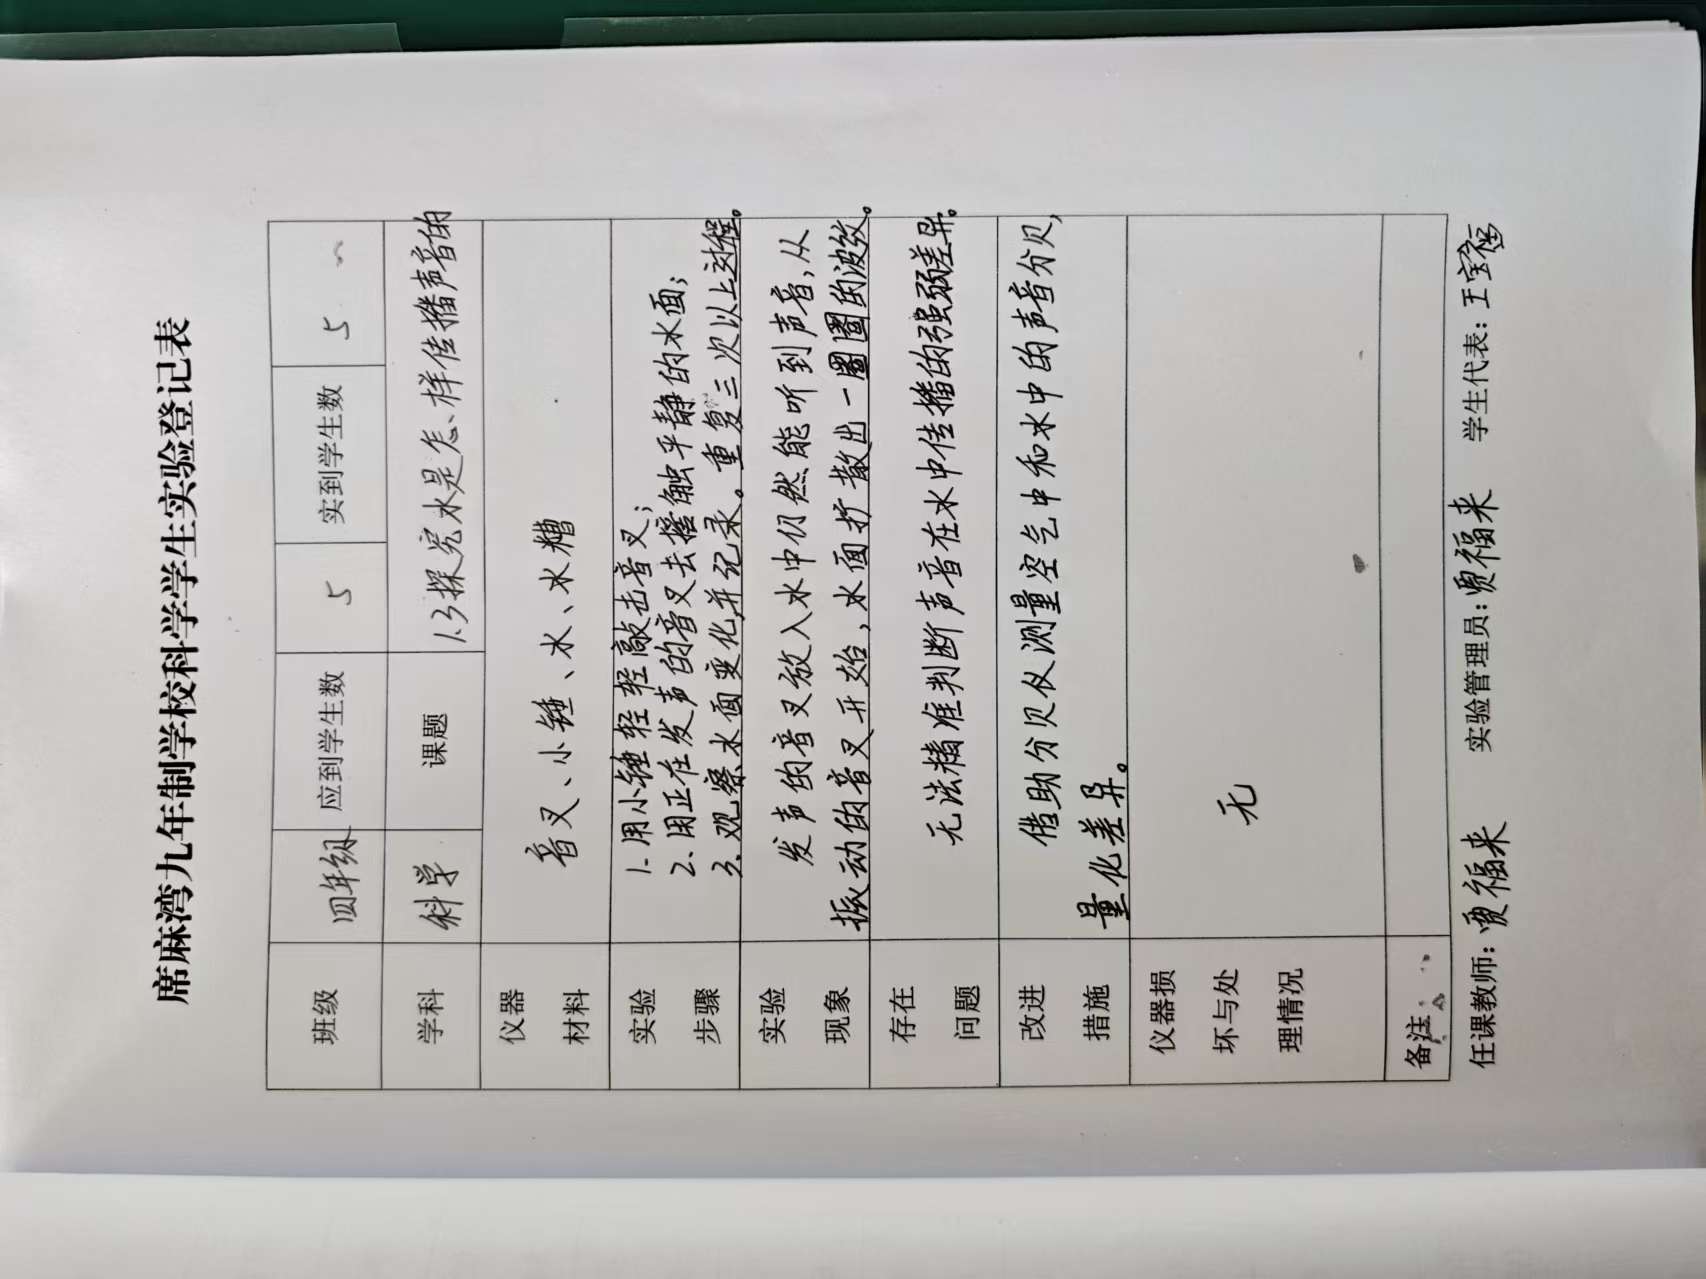 席麻湾九年制学校科学学生实验登记表
班级 四年级 应到学生数 5 实到学生数 5
学科 科学 课题 1.3探究水是怎样传播声音的
仪器材料 音叉、小锤、水、水槽
实验步骤 1.用小锤轻轻敲击音叉;
2.用正在发声的音叉去接触平静的水面;
3.观察水面变化,并记录。重复三次以上过程。
实验现象 发声的音叉放入水中仍然能听到声音,从
振动的音叉开始,水面扩散出一圈圈的波纹。
存在问题 无法精准判断声音在水中传播的强弱差异。
改进措施 借助分贝仪测量空气中和水中的声音分贝,
量化差异。
仪器损坏与处理情况 无
备注
任课教师:贾福来 实验管理员:贾福来 学生代表:王